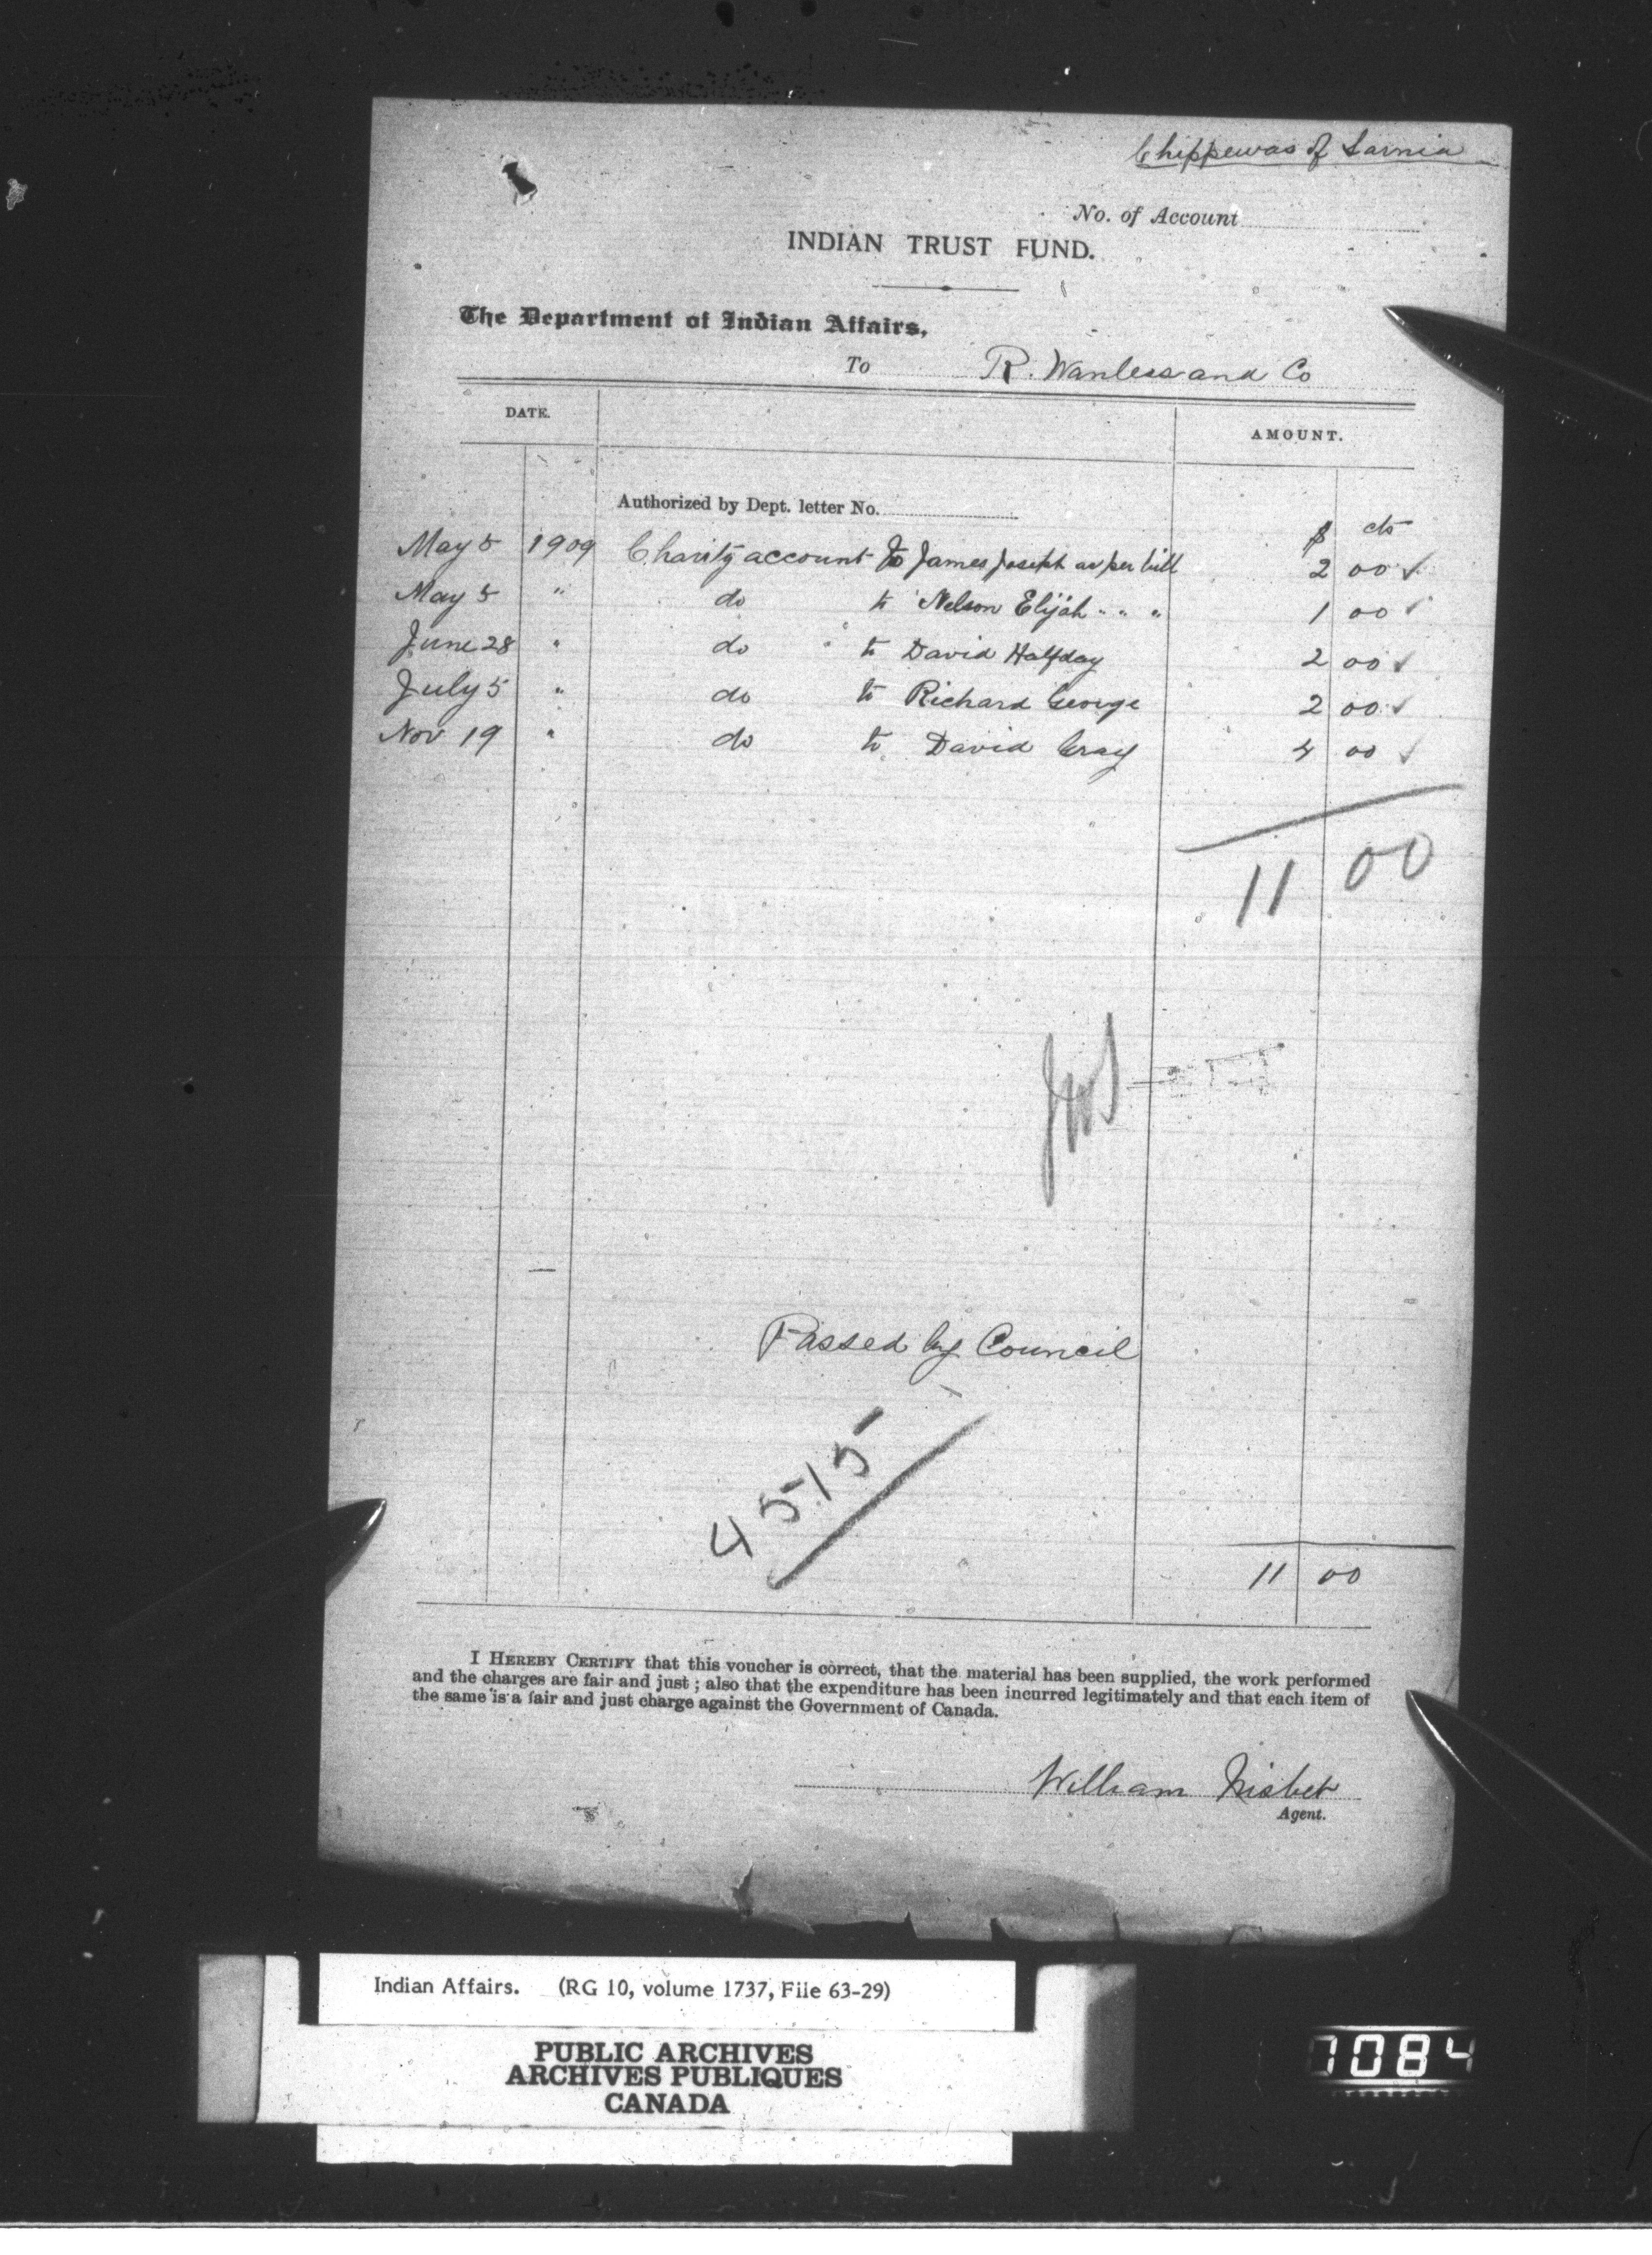 Chippewas of Sarnia
No. of Account
INDIAN TRUST FUND.
The Department of Indian Affairs,
To R. Wanless and Co
DATE. AMOUNT.
Authorized by Dept. letter No.
$ cts
May 5 1909 Charity account to James Joseph as per bill 2 00 ✓
May 5 " do to Nelson Elijah " " " 1 00 ✓
June 28 " do to David Halfday 2 00 ✓
July 5 " do to Richard George 2 00 ✓
Nov 19 " do to David Gray 4 00 ✓
11 00
Passed by Council
4515
11 00
I HEREBY CERTIFY that this voucher is correct, that the material has been supplied, the work performed
and the charges are fair and just; also that the expenditure has been incurred legitimately and that each item of
the same is a fair and just charge against the Government of Canada.
William Nisbet
Agent.
Indian Affairs. (RG 10, volume 1737, File 63-29)
PUBLIC ARCHIVES
ARCHIVES PUBLIQUES
CANADA
7084